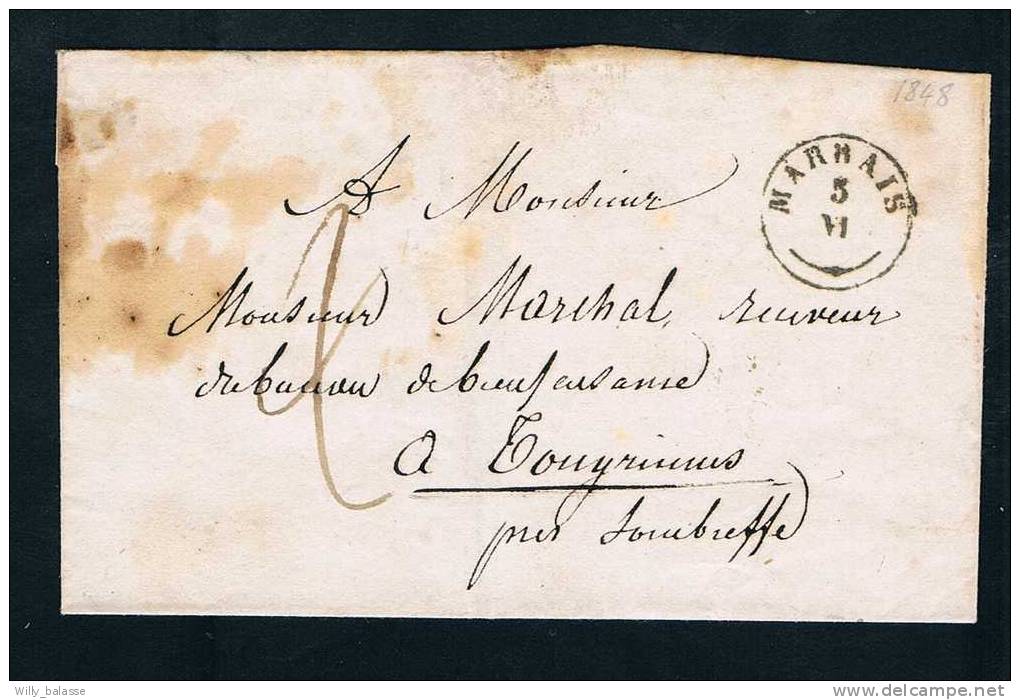 1848
MARBAIS
5
VI
A Monsieur
Monsieur Marchal, receveur
du bureau de bienfaisance
2
a Tongrinnes
près Sombreffe
Willy_balasse
delcampe.net